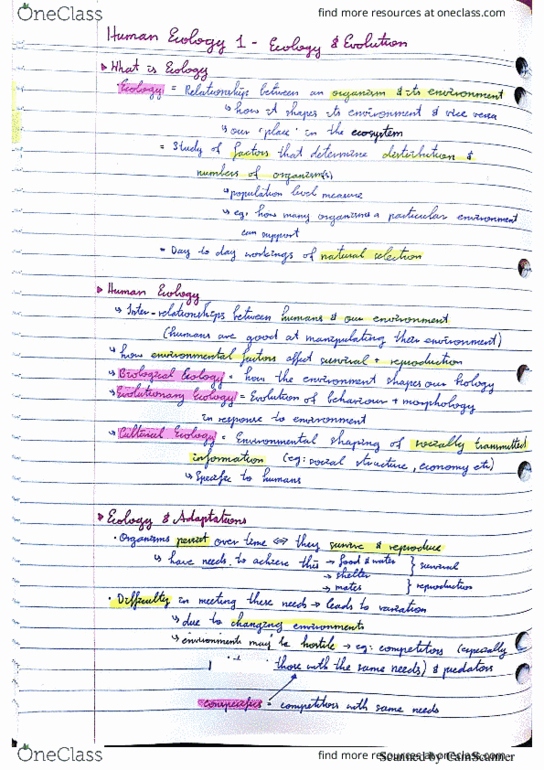 OneClass
find more resources at oneclass.com
Human Ecology 1 - Ecology & Evolution
▸ What is Ecology
Ecology = Relationships between an organism & its environment
↳ how it shapes its environment & vice versa
↳ our 'place' in the ecosystem
= Study of factors that determine distribution &
numbers of organism(s)
↳ population level measure
↳ eg. how many organisms a particular environment
can support
= Day to day workings of natural selection
▸ Human Ecology
↳ Inter-relationships between humans & our environment
(humans are good at manipulating their environment)
↳ how environmental factors affect survival + reproduction
↳ Biological Ecology = how the environment shapes our biology
↳ Evolutionary Ecology = Evolution of behaviour + morphology
in response to environment
↳ Cultural Ecology = Environmental shaping of socially transmitted
information (eg: social structure, economy etc)
↳ Specific to humans
▸ Ecology & Adaptations
· Organisms persist over time ⇔ they survive & reproduce
↳ have needs to achieve this → food & water } survival
→ shelter
→ mates } reproduction
· Difficulty in meeting these needs → leads to variation
↳ due to changing environments
↳ environments may be hostile → eg: competitors (especially
those with the same needs) & predators
conspecifics = competitors with same needs
OneClass
find more resources at oneclass.com
Scanned by CamScanner